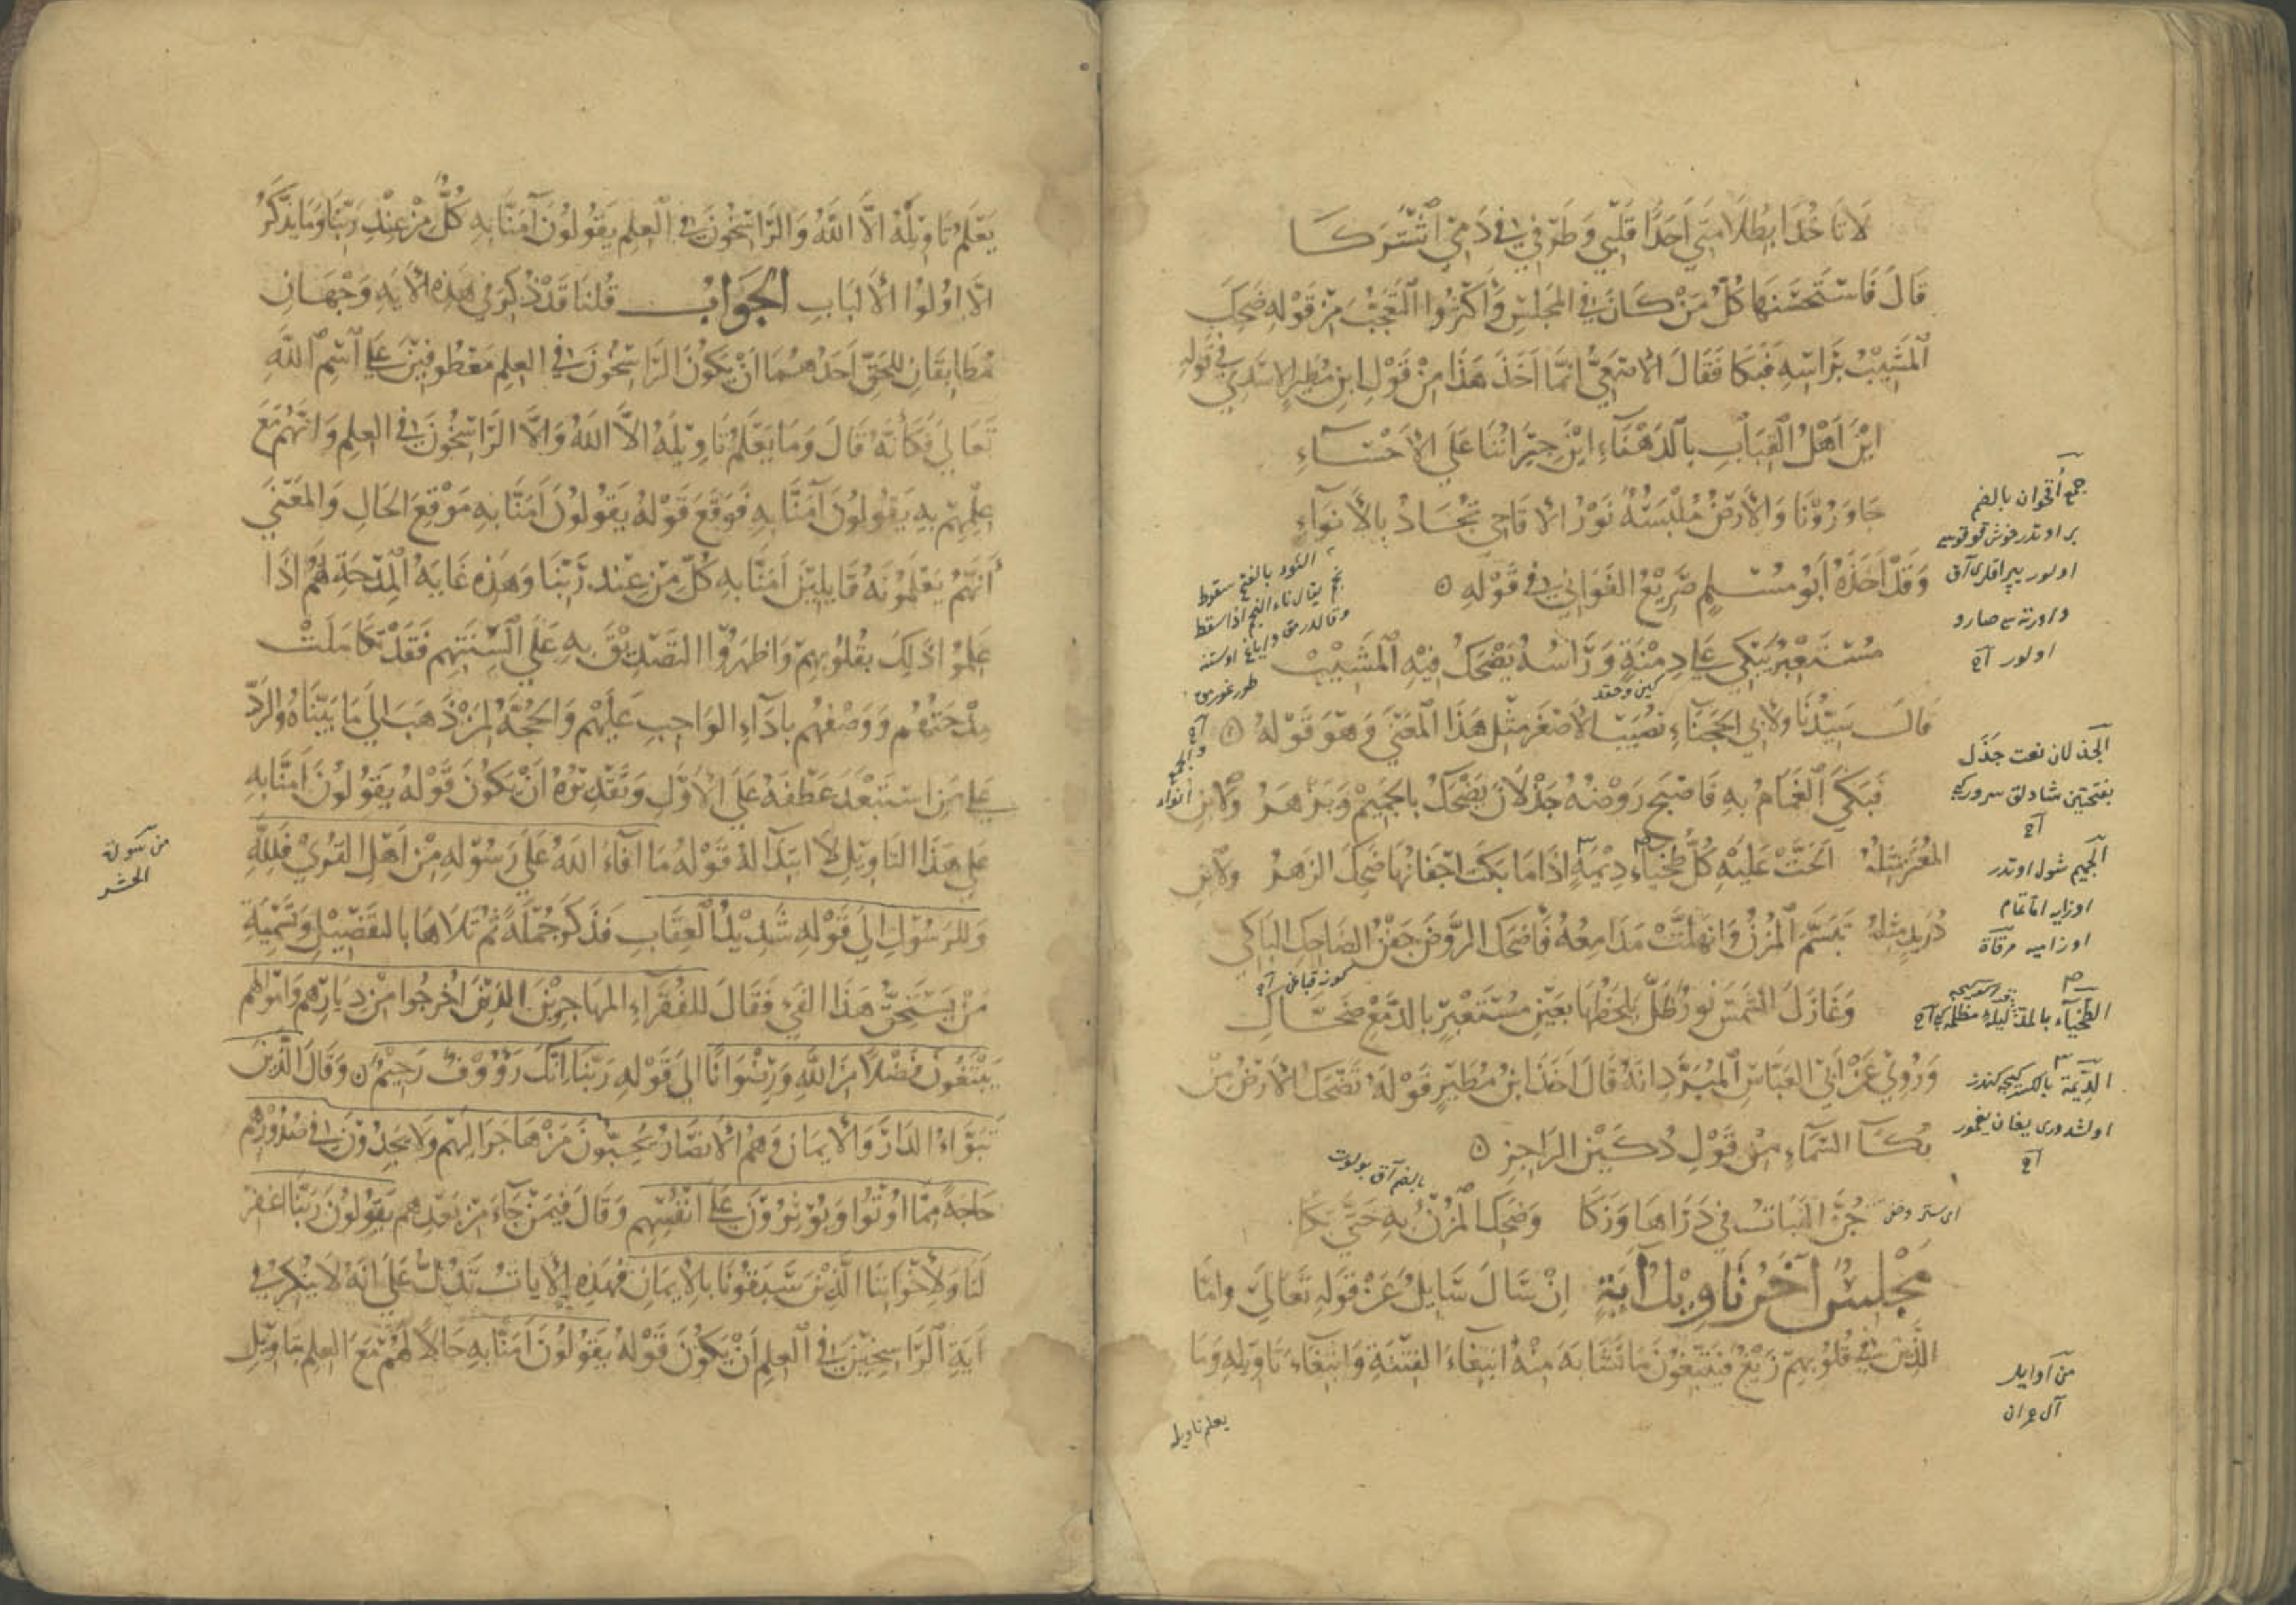 لَا تَاخُذَا بِظُلَامَتِي أَحَدًا قَلْبِي وَطَرْفِي فِي دَمِي اشْتَرَكَا
قَالَ فَاسْتَحْسَنَهَا كُلُّ مَنْ كَانَ فِي المَجْلِسِ وَأَكْثَرُوا التَّعَجُّبَ مِنْ قَوْلِهِ ضَحِكَ
الْمَشِيْبُ بِرَاسِهِ فَبَكَا فَقَالَ الْأَصْمَعِيُّ اِنَّمَا اَخَذَ هَذَا مِنْ قَوْلِ ابنِ مُطَيرٍ الاسَدِيّ فِي قَولِهِ
اَيْنَ اَهْلُ الْقِبَابِ بِالدَهْنَاءِ اَيْنَ جِيْرَانُنَا عَلَى الْأَحْسَاءِ
جَاوَرُوْنَا وَالْأَرْضُ مُلْبَسَةٌ نَوْرَ الْأَقَاحِي تُجَادُ بِالْأَنْوَاءِ
وَقَدْ اَخَذَهُ أَبُو مُسْلِمٍ صَرِيْعُ الغَوَانِي فِي قَوْلِهِ
مُسْتَعْبِرٌ يَبْكِي عَلَى دِمْنَةٍ وَرَاسُهُ يَضْحَكُ فِيْهِ الْمَشِيْبُ
كين وحقد
قالَ سَيِّدُنَا وَلِأَبِي الحَجْنَاءِ نُصَيْبٍ الأَصْغَرِ مِثْلُ هَذَا الْمَعْنَى وَهُوَ قَوْلُهُ
فَبَكَى الْغَمَامُ بِهِ فَاَصْبَحَ رَوْضُهُ جَذْلَانَ يَضْحَكُ بِالجَمِيْمِ وَيَزْهَرُ وَلِابنِ
المُعْتَزِّ مِثْلُهُ اَلَحَّتْ عَلَيْهِ كُلُّ طَخْيَاءَ دِيْمَةٍ اِذَا مَا بَكَتْ اَجْفَانُهَا ضَحِكَ الزَهْرُ وَلِابنِ
دُرَيدٍ مِثْلُهُ تَبَسَّمَ الْمُزْنُ وَانْهَلَّتْ مَدَامِعُهُ فَاَضْحَكَ الرَّوْضَ جَفْنُ الضَاحِكِ البَاكِي
وَغَازَلَ الشَّمْسَ نَوْرٌ ظَلَّ يَلْحَظُهَا بِعَيْنِ مُسْتَعْبِرٍ بِالدَّمْعِ ضَحَّاكِ
وَرُوِيَ عَنْ أَبِي العَبَّاسِ الْمُبَرَّدِ اَنَّهُ قَالَ اَخَذَ ابنُ مُطَيْرٍ قَوْلَهُ تَضْحَكُ الْاَرْضُ مِنْ
بُكَاءِ السَّمَاءِ مِنْ قَوْلِ دُكَيْنٍ الرَاجِزِ
جُنَّ النَبَاتُ فِي ذَرَاهَا وَزَكَا وَضَحِكَ الْمُزْنُ بِهِ حَتَّى بَكَا
مَجْلِسٌ آخَرُ تَاوِيلُ آيَةٍ اِنْ سَالَ سَايِلٌ عَنْ قَولِهِ تَعَالَى وامَّا
الَّذِيْنَ فِي قُلُوبِهِمْ زَيْغٌ فَيَتَّبِعُونَ مَا تَشَابَهَ مِنْهُ ابْتِغَاءَ الفِتْنَةِ وَابْتِغَاءَ تَاوِيلِهِ وَمَا
يعلم تاويله
جمع أقحوان بالضم
اولور آخ
الجذلان نعت جذل
الجميم شول اوتدر
من آوايل
آل عمران
يَعْلَمُ تَاوِيْلَهُ اِلَّا اللهُ وَالرَّاسِخُونَ فِي الْعِلمِ يَقُولُونَ آمَنَّا بِهِ كُلٌّ مِنْ عِنْدِ رَبِّنَا وَمَا يَذَّكَّرُ
اِلَّا اوُلُوا الْأَلْبَابِ الجَوَابُ قُلْنَا قَدْ ذُكِرَ فِي هَذِهِ الْآيَةِ وَجْهَانِ
مُطَابِقَانِ لِلحَقِّ اَحَدُهُمَا اَنْ يَكُوْنَ الرَّاسِخُونَ فِي العِلمِ مَعْطُوفِيْنَ عَلَى اسْمِ اللهِ
تَعَالَى فَكَأَنَّهُ قَالَ وَمَا يَعْلَمُ تَاوِيْلَهُ اِلَّا اللهُ وَاِلَّا الرَّاسِخُونَ فِي العِلمِ وَاَنَّهُمْ مَعَ
عِلْمِهِمْ بِهِ يَقُولُونَ آمَنَّا بِهِ فَوَقَعَ قَوْلُهُ يَقُولُونَ آمَنَّا بِهِ مَوْقِعَ الحَالِ وَالمَعْنَى
أَنَّهُمْ يَعْلَمُونَهُ قَايِلِيْنَ آمَنَّا بِهِ كُلٌّ مِنْ عِنْدِ رَبِّنَا وَهَذِهِ غَايَةُ الْمِدْحَةِ لَهُمْ اِذَا
عَلِمُوا ذَلِكَ بِقُلُوبِهِمْ وَاَظْهَرُوا التَصْدِيْقَ بِهِ عَلَى اَلْسِنَتِهِم فَقَدْ تَكَامَلَتْ
مِدْحَتُهُم وَوَصْفُهُم بِاَدَاءِ الوَاجِبِ عَلَيْهِم وَالحُجَّةُ لِمَنْ ذَهَبَ اِلَى مَا بَيَّنَّاهُ وَالرَدّ
عَلَى مَنِ اسْتَبْعَدَ عَطْفَهُ عَلَى الْاَوَّلِ وَتَقْدِيْرَهُ اَنْ يَكُونَ قَوْلُهُ يَقُولُونَ آمَنَّا بِهِ
عَلَى هَذَا التَاوِيْلِ لَا ابْتَدَا لَهُ قَوْلُهُ مَا اَفَاءَ اللهُ عَلَى رَسُوْلِهِ مِنْ اَهْلِ القُرَى فَلِلّهِ
وَلِلرَسُوْلِ اِلَى قَوْلِهِ شَدِيْدُ الْعِقَابِ فَذَكَرَ جُمْلَةً ثُمَّ تَلَاهَا بِالتَفْصِيْلِ وَتَسْمِيَةِ
مَنْ يَسْتَحِقُّ هَذَا الفَيْءَ فَقَالَ لِلفُقَرَاءِ المُهَاجِرِيْنَ الَّذِيْنَ اُخْرِجُوا مِنْ دِيَارِهِمْ وَاَمْوَالِهِمْ
يَبْتَغُونَ فَضْلًا مِنَ اللهِ وَرِضْوَانًا اِلَى قَوْلِهِ رَبَّنَا اِنَّكَ رَؤُوْفٌ رَحِيْمٌ وَقَالَ الَّذِيْنَ
تَبَوَّءُوا الدَارَ وَالْاِيمَانَ وَهُمُ الْاَنْصَارُ يُحِبُّونَ مَنْ هَاجَرَ اِلَيْهِمْ وَلَا يَجِدُوْنَ فِي صُدُوْرِهِمْ
حَاجَةً مِمَّا اُوتُوا وَيُؤْثِرُوْنَ عَلَى اَنْفُسِهِم وَقَالَ فِيْمَنْ جَآءَ مِنْ بَعْدِهِم يَقُولُونَ رَبَّنَا اغْفِرْ
لَنَا وَلِاِخْوَانِنَا الَّذِيْنَ سَبَقُونَا بِالْاِيمَانِ فَهَذِهِ الْاَيَاتُ تَدُلُّ عَلَى اَنَّهُ لَا يُنْكَرُ فِي
آيَةِ الرَّاسِخِيْنَ فِي الْعِلمِ أَنْ يَكُونَ قَوْلُهُ يَقُولُونَ آمَنَّا بِهِ حَالًا لَهُمْ مَعَ العِلمِ بِتَاوِيْلِ
من سورة
الحشر